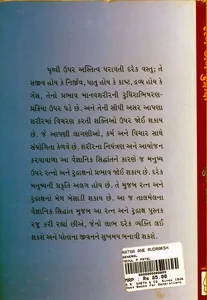 પૃથ્વી ઉપર અસ્તિત્વ ધરાવતી દરેક વસ્તુ; તે
સજીવ હોય કે નિર્જીવ, ધાતુ હોય કે કાષ્ટ, દ્રવ્ય હોય કે
ગેસ, તેનો પ્રભાવ માનવશરીરની રુધિરાભિષરણ-
પ્રક્રિયા ઉપર પડે છે. અને તેની સીધી અસર આપણા
શરીરમાં વિચરણ કરતી શક્તિઓ ઉપર જોઈ શકાય
છે. જે આપણી લાગણીઓ, કર્મ અને વિચાર સાથે
સંયોગિતા કેળવે છે. શરીરના નિયંત્રણ અને આયોજન
કરવાવાળા આ વૈજ્ઞાનિક સિદ્ધાંતને કારણે જ મનુષ્ય
ઉપર રત્નો અને રુદ્રાક્ષનો પ્રભાવ જોઈ શકાય છે. દરેક
મનુષ્યની પ્રકૃતિ અલગ હોય છે. તે મુજબ રત્ન અને
રુદ્રાક્ષનો મેળ બેસાડી શકાય છે. આ જ તાલમેલના
વૈજ્ઞાનિક સિદ્ધાંત મુજબ આ રત્ન અને રુદ્રાક્ષ પુસ્તક
રજૂ કરી રહ્યાં છીએ, જેનો લાભ દરેક વ્યક્તિ લઈ
શકશે અને પોતાના જીવનને સુખમય બનાવી શકશે.
RATNA ANE RUDRAKSH
GENERAL
MRP : Rs 85.00